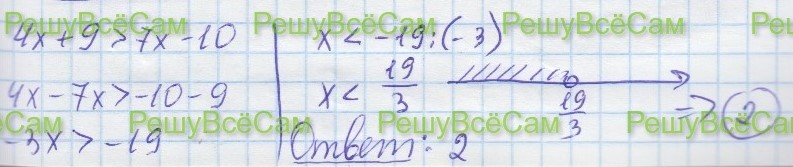 4x + 9 > 7x - 10
4x - 7x > -10 - 9
-3x > -19
x < -19 : (-3)
x < 19/3
19/3
=> 2
Ответ: 2
РешуВсёСам РешуВсёСам РешуВсёСам
РешуВсёСам РешуВсёСам РешуВсёСам
РешуВсёСам РешуВсёСам